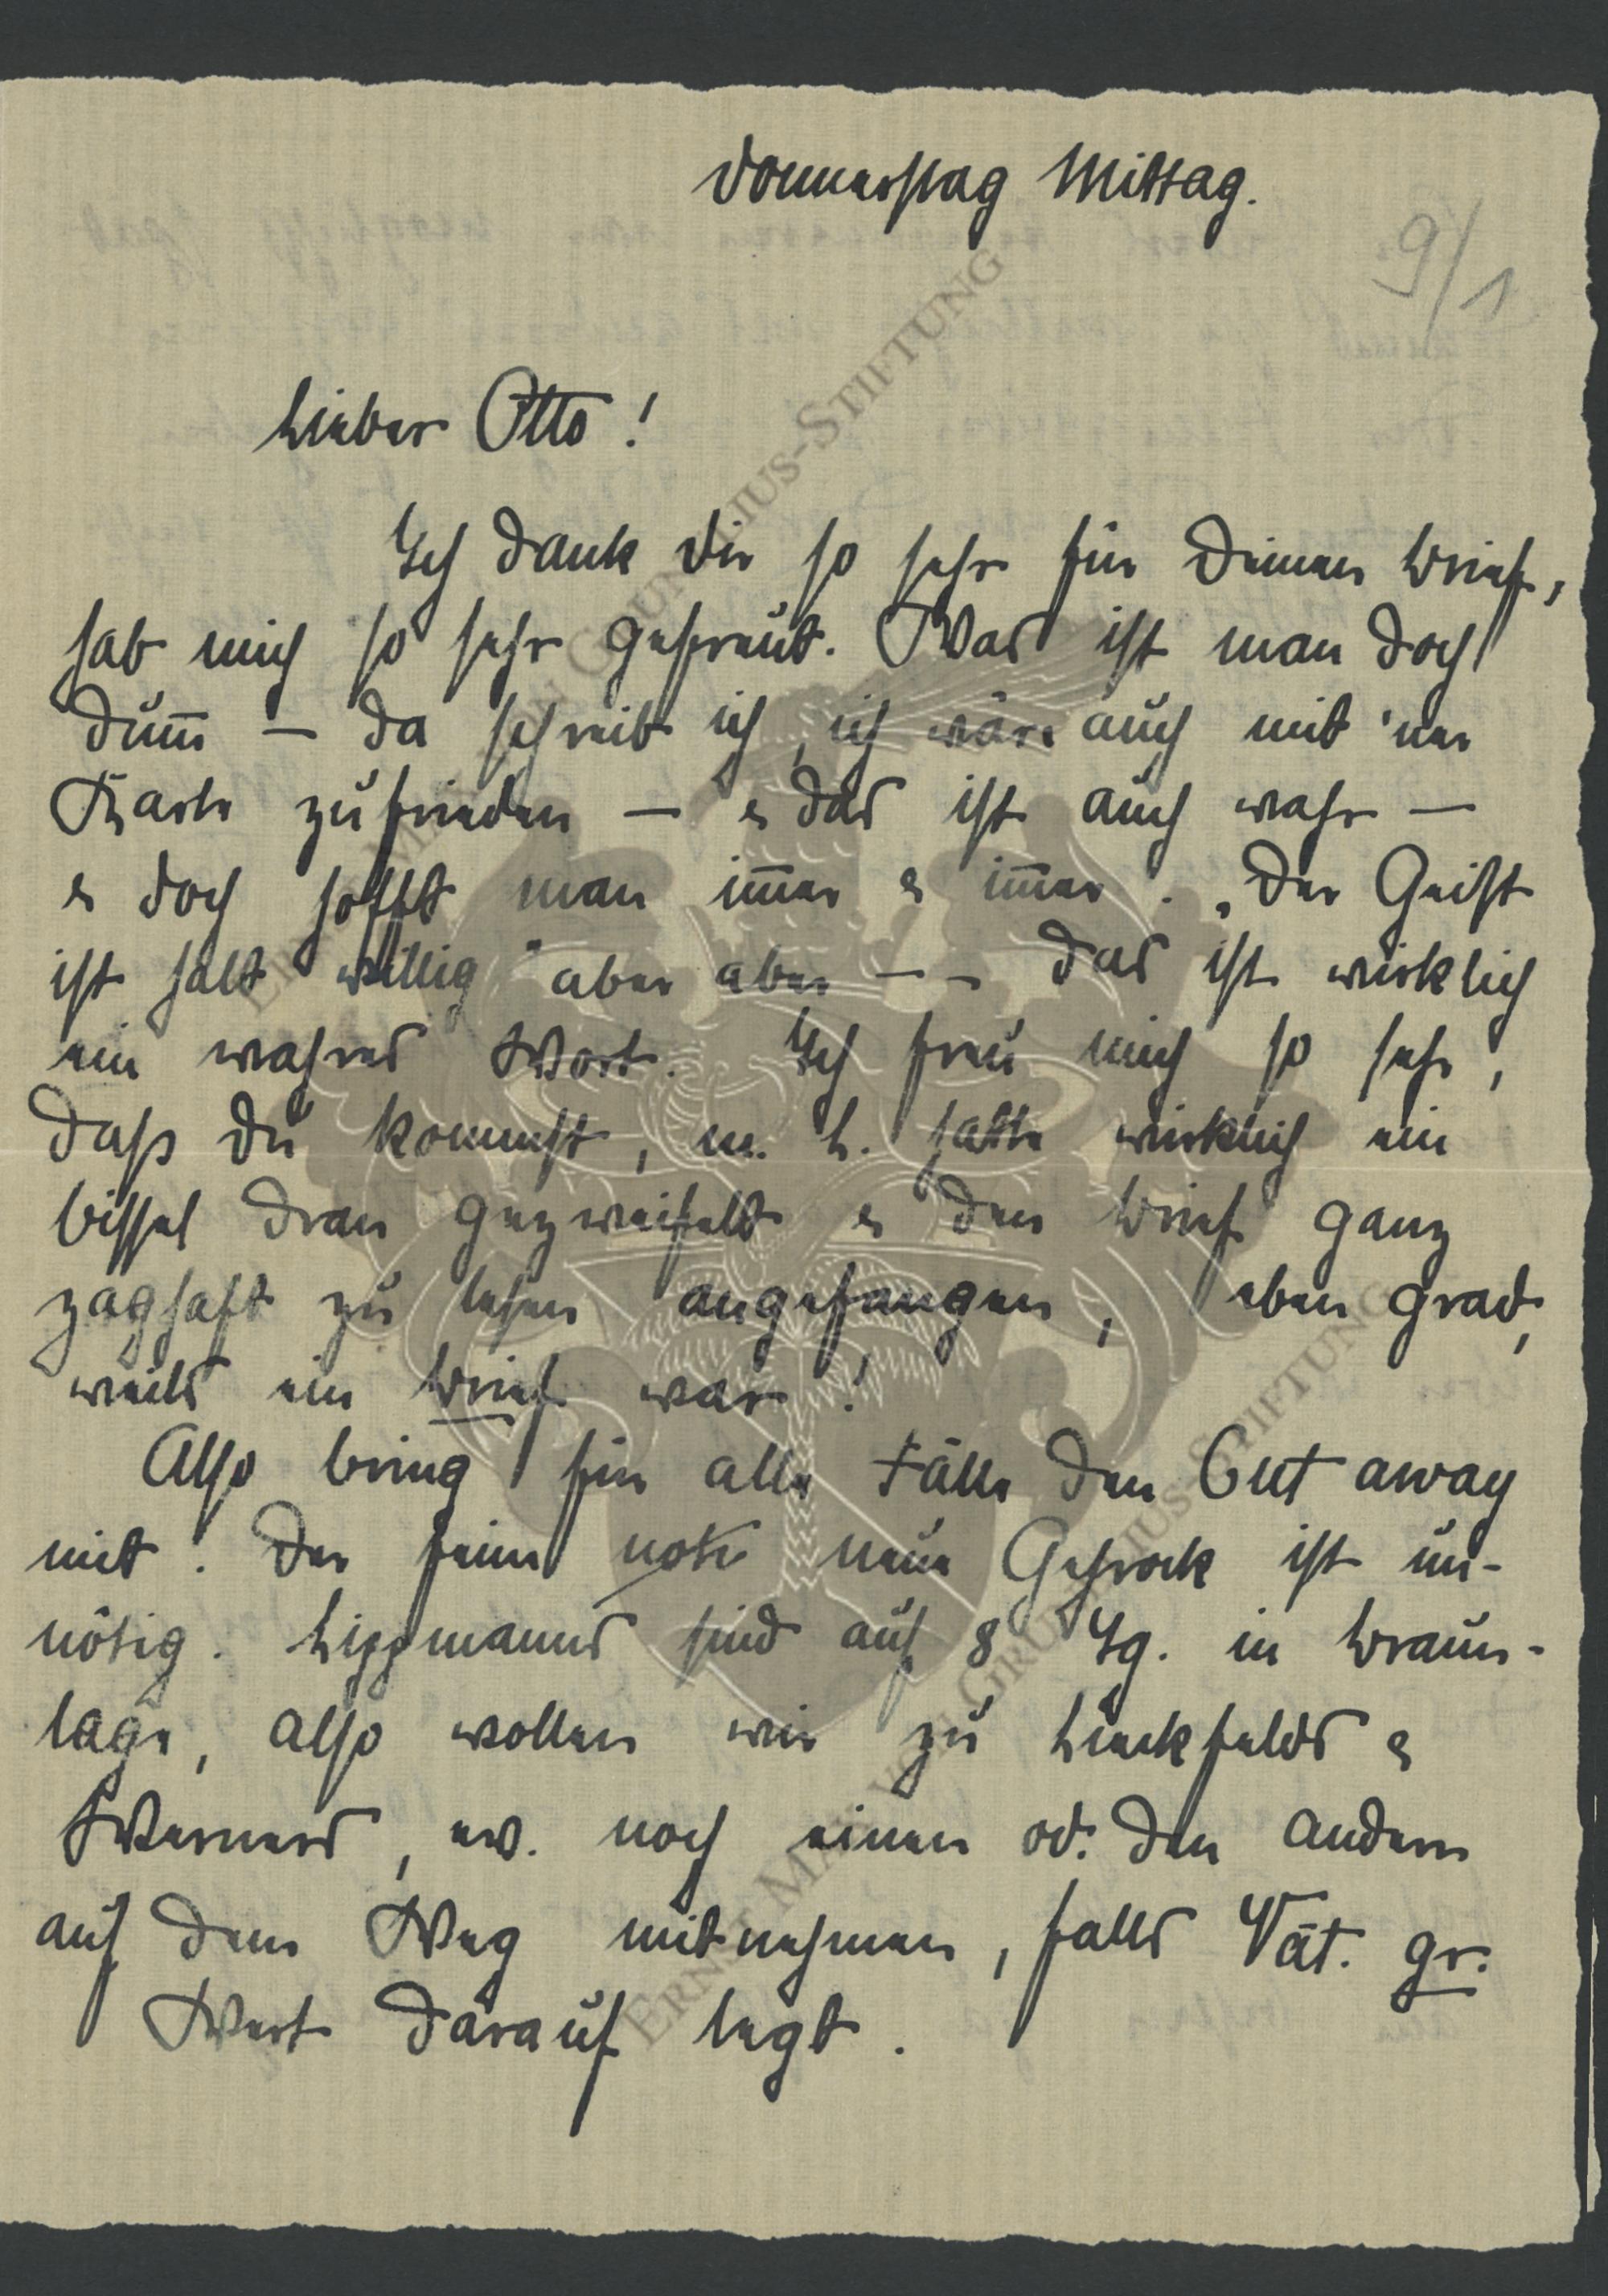 Donnerstag Mittag.
9/1
Lieber Otto!
Ich dank Dir so sehr für Deinen Brief,
hab mich so sehr gefreut. Was ist man doch
dum̅ – da schreib ich, ich wäre auch mit 'ner
Karte zufrieden – & das ist auch wahr –
& doch hofft man im̅er & im̅er. „Der Geist
ist halt willig" aber aber – – das ist wirklich
ein wahres Wort. Ich freu mich so sehr,
daß Du kommst, m. L. hatte wirklich ein
bissel dran gezweifelt & den Brief ganz
zaghaft zu lesen angefangen, eben grad,
weils ein Brief war!
Also bring für alle Fälle den Cut away
mit. Der feine neue Gehrock ist un-
nötig. Lippmanns sind auf 8 Tg. in Braun-
lage, also wollen wir zu &
Werners, ev. noch einen od. den andern
auf dem Weg mitnehmen, falls Vat. gr.
Wert darauf legt.
ERNST MAX VON GRUNELIUS-STIFTUNG
ERNST MAX VON GRUNELIUS-STIFTUNG